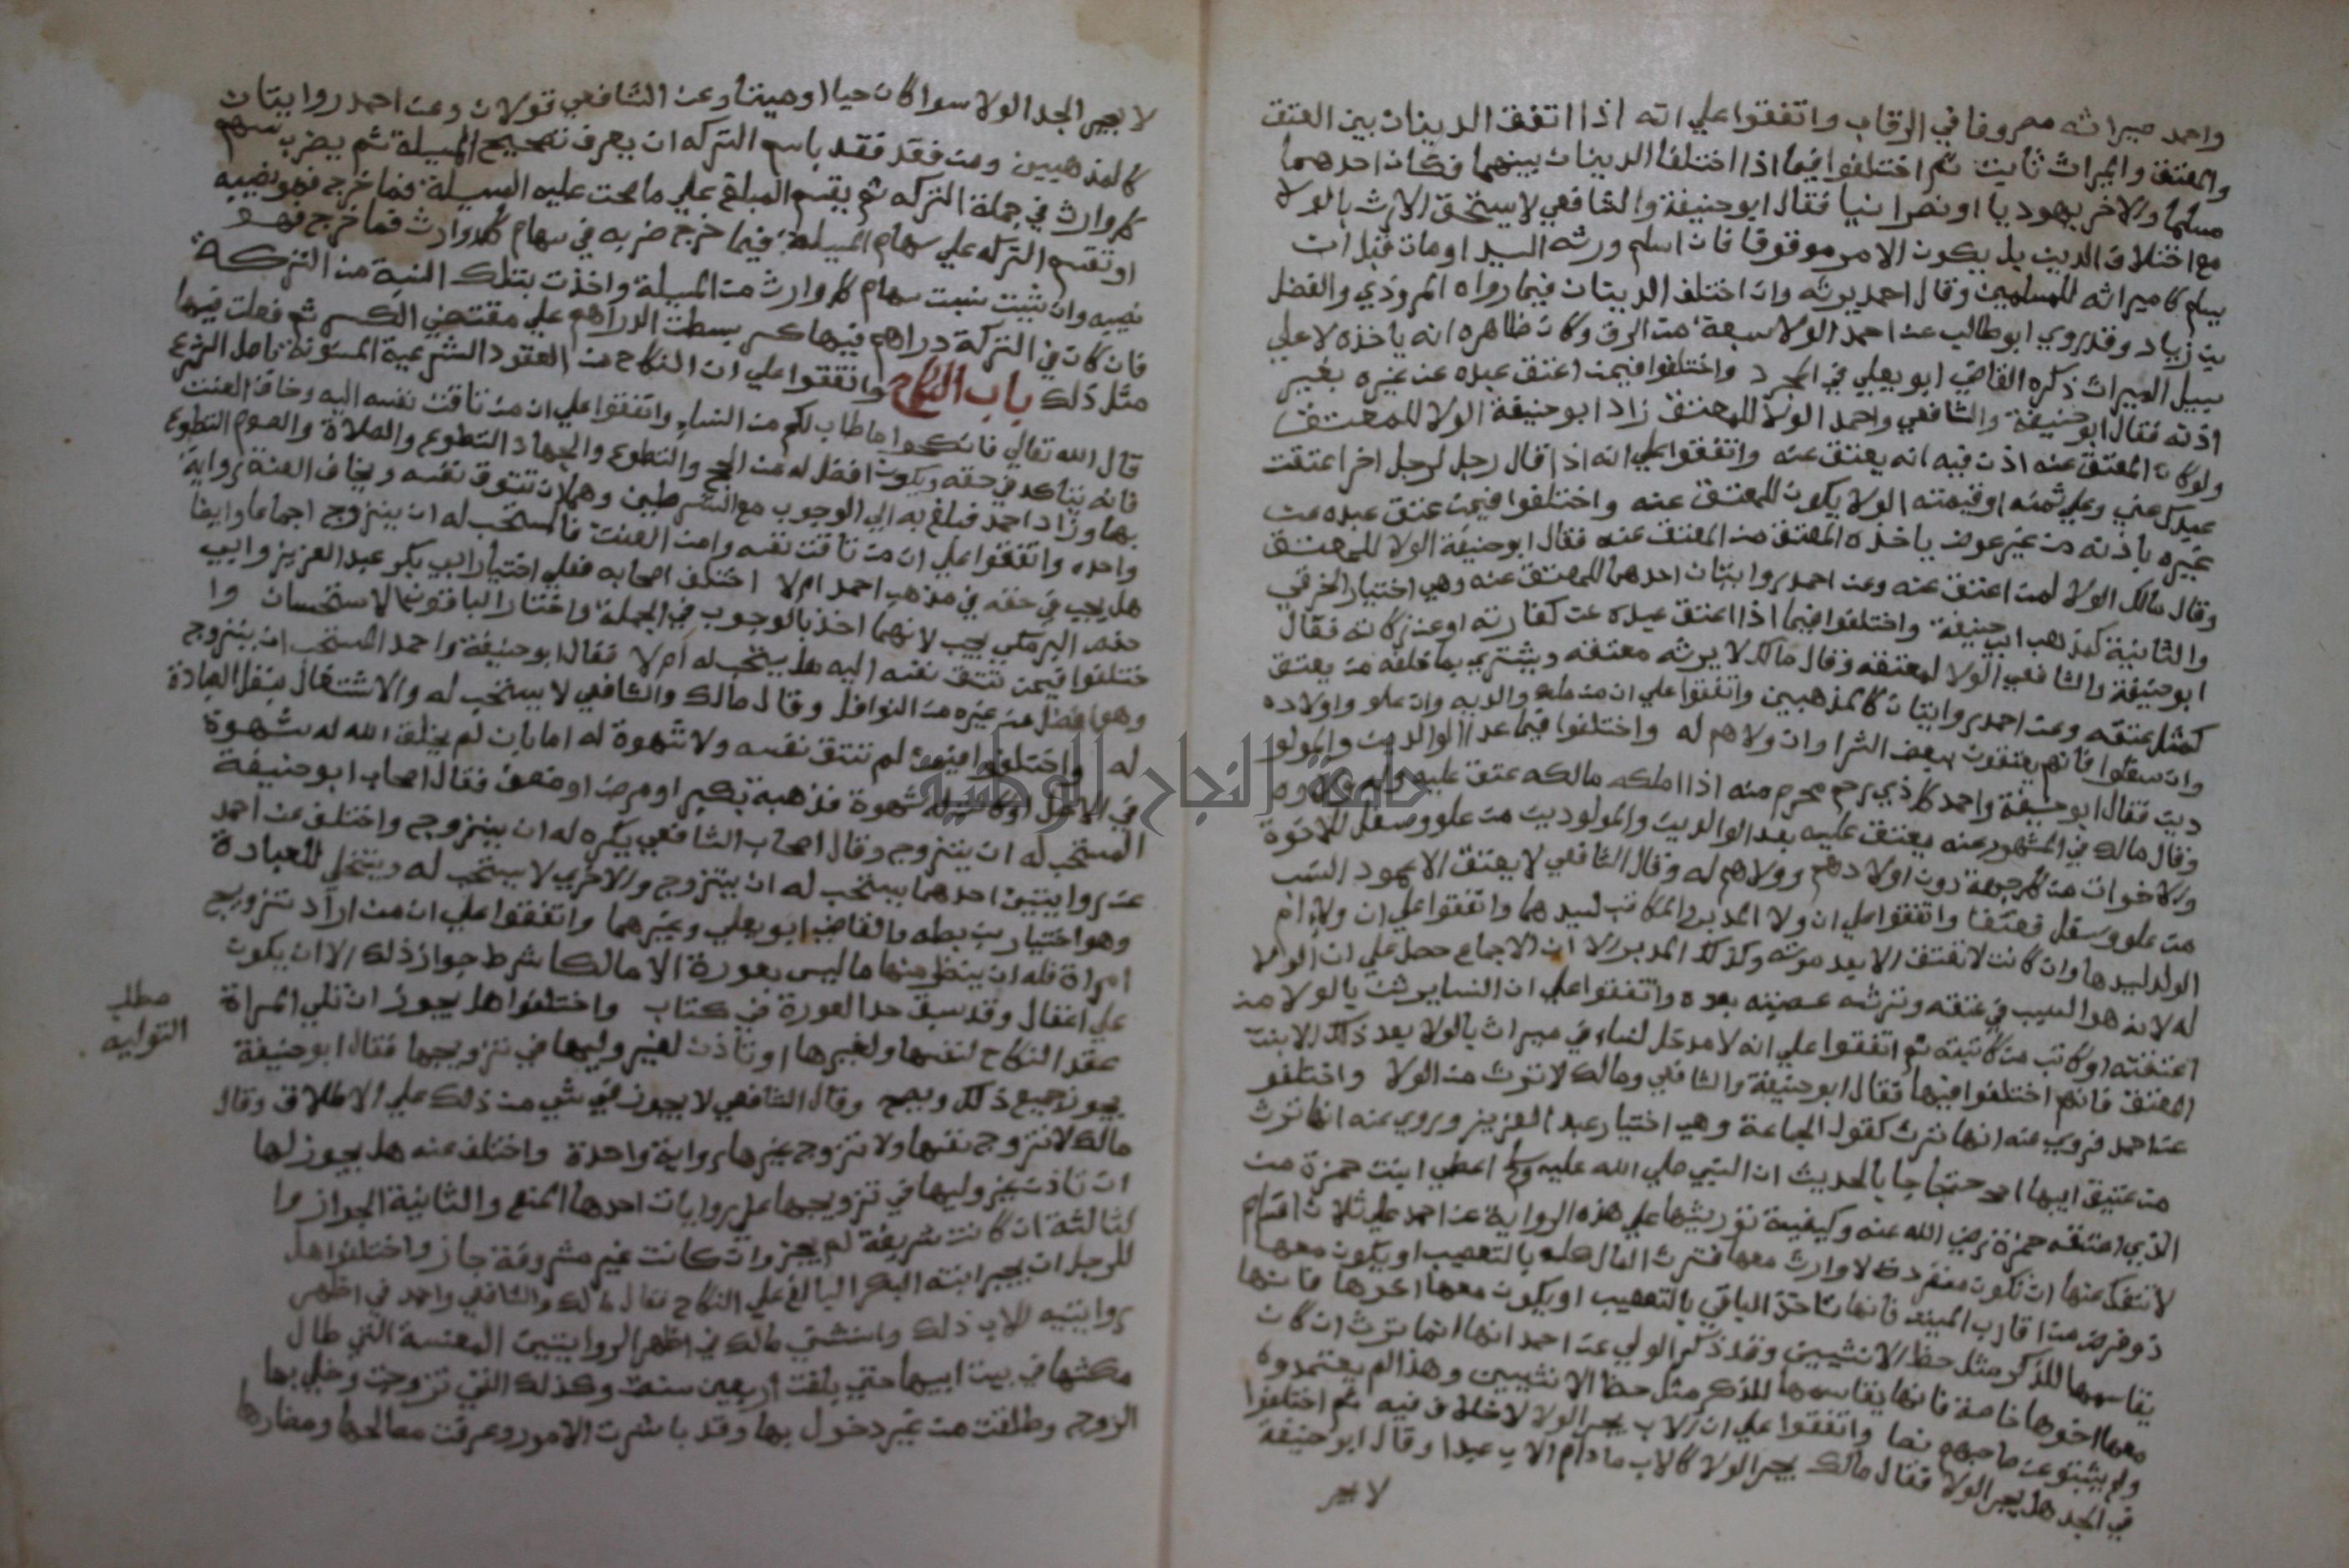 واحمد ميراثه مصروفا في الرقاب واتفقوا علي انه اذا اتفق الدينان بين المعتق
والمعتق والميراث ثابت ثم اختلفوا فيما اذا اختلفا الدينان بينهما فكان احدهما
مسلما والاخر يهوديا او نصرانيا فقال ابو حنيفة والشافعي لا يستحق الارث بالولا
مع اختلاف الدين بل يكون الامر موقوفا فان اسلم ورثه السيد او مات قبل ان
يسلم كا ميراثه للمسلمين وقال احمد يرثه وان اختلف الدينان فيما رواه المروذي والفضل
بن زياد وقد روي ابو طالب عن احمد الولا سبعة من الرق وكان ظاهره انه ياخذه لا علي
سبيل الميراث ذكره القاضي ابو يعلي في المجرد واختلفوا فيمن اعتق عبده عن غيره بغير
اذنه فقال ابو حنيفة والشافعي واحمد الولا للمعتق زاد ابو حنيفة الولا للمعتق
ولو كان المعتق عنه اذن فيه انه يعتق عنه واتفقوا علي انه اذا قال رجل لرجل اخر اعتقت
عبدك عني وعلي ثمنه او قيمته الولا يكون للمعتق عنه واختلفوا فيمن عتق عبده عن
غيره باذنه من غير عوض ياخذه المعتق من المعتق عنه فقال ابو حنيفة الولا للمعتق
وقال مالك الولا لمن اعتق عنه وعن احمد روايتان احدهما للمعتق عنه وهي اختيار الخرقي
والثانية كمذهب ابي حنيفة واختلفوا فيما اذا اعتق عبده عن كفارته او عن زكاته فقال
ابو حنيفة والشافعي الولا لمعتقه وقال مالك لا يرثه معتقه ويشتري بما خلفه من يعتق
كمثل عتقه وعن احمد روايتان كالمذهبين واتفقوا علي ان من ملك والديه وان علو واولاده
وان سفلوا فانهم يعتقون بنفس الشرا وان ولاهم له واختلفوا فيما عدا الوالدين والمولو
دين فقال ابو حنيفة واحمد كل ذي رحم محرم منه اذا ملكه مالكه عتق عليه
وقال مالك في المشهور عنه يعتق عليه بعد الوالدين والمولودين من علو وسفل للاخوة
والاخوات من كل جهة دون اولادهم وولاهم له وقال الشافعي لا يعتق الا عمود النسب
من علو وسفل فعتقا واتفقوا علي ان ولا المدبر المكاتب لسيدهما واتفقوا علي ان ولا ام
الولد لسيدها وان كانت لا تعتق الا بعد موته وكذلك المدبر الا ان الاجماع حصل علي ان الولا
له لانه هو السبب في عتقه وترثه عصبته بعده واتفقوا علي ان النسا يرثن بالولا من
اعتقنه او كاتب من كاتبنه ثم اتفقوا علي انه لا مدخل لنساء في ميراث بالولا بعد ذلك الا بنت
المعتق فانهم اختلفوا فيها فقال ابو حنيفة والشافعي ومالك لا ترث من الولا واختلفو
عن احمد فروي عنه انها ترث كقول الجماعة وهي اختيار عبد العزيز وروي عنه انها ترث
من عتيق ابيها احتجاجا بالحديث ان النبي صلي الله عليه وسلم اعطي ابنت حمزة من
الذي اعتقه حمزة رضي الله عنه وكيفية توريثها علي هذه الرواية عن احمد علي ثلاث اقسام
لا تنفك عنها ان تكون منفردة لا وارث معها فترث المال كله بالتعصيب او يكون معها
ذو فرض من اقارب الميت فانها تاخذ الباقي بالتعصيب او يكون معها اخوها فانها
يقاسمها للذكر مثل حظ الانثيين وقد ذكر الولي عن احمد انها انما ترث ان كان
معها اخوها خاصة فانها يقاسمها للذكر مثل حظ الانثيين وهذا لم يعتمدوه
ولم يثبتو عن صاحبهم نصا واتفقوا علي ان الاب يجر الولا لا خلاف فيه ثم اختلفوا
في الجد هل يجر الولا فقال مالك يجر الولا كالاب ما دام الاب عبدا وقال ابو حنيفة
لا يجر
لا يجر الجد الولا سوا كان حيا او ميتا وعن الشافعي قولان وعن احمد روايتان
كالمذهبين ومن فقد فقد باسم التركه ان يعرف تصحيح المسيلة ثم يضرب سهم
كل وارث في جملة التركه ثم يقسم المبلغ علي ما صحت عليه المسيلة فما خرج فهو نصيبه
او تقسم التركه علي سهام المسيلة فيما خرج ضربه في سهام كل وارث فما خرج فهو
نصيبه وان شئت نسبت سهام كل وارث من المسيلة واخذت بتلك النسبة من التركة
فان كان في التركة دراهم فيها كسر بسطت الدراهم علي مقتضي الكسر ثم فعلت فيها
مثل ذلك باب النكاح واتفقوا علي ان النكاح من العقود الشرعية المسنونة باصل الشرع
قال الله تعالي فانكحوا ما طاب لكم من النساء واتفقوا علي ان من تاقت نفسه اليه وخاف العنت
فانه يتاكد في حقه ويكون افضل له من الحج والتطوع والجهاد التطوع والصلاة والصوم التطوع
بها وزاد احمد فبلغ به الي الوجوب مع الشرطين وهما ان تتوق نفسه ويخاف العنة رواية
واحده واتفقوا علي ان من تاقت نفسه وامن العنت فالمستحب له ان يتزوج اجماعا وايضا
هل يجب في حقه في مذهب احمد ام لا اختلف اصحابه فعلي اختيار ابي بكر عبد العزيز وابي
حفص البرمكي يجب لانهما اخذ بالوجوب في الجملة واختار الباقون الاستحسان وا
ختلفوا فيمن تتق نفسه اليه هل يستحب له ام لا فقال ابو حنيفة واحمد المستحب ان يتزوج
وهو افضل من غيره من النوافل وقال مالك والشافعي لا يستحب له والاشتغال بنفل العبادة
له واختلفوا فيمن لم تتق نفسه ولا شهوة له اما بان لم يخلق الله له شهوة
في الاصل او كانت له شهوة فذهبة بكبر او مرض او ضعف فقال اصحاب ابو حنيفة
المستحب له ان يتزوج وقال اصحاب الشافعي يكره له ان يتزوج واختلف عن احمد
عن روايتين احدهما يستحب له ان يتزوج والاخري لا يستحب له ويتخلي للعبادة
وهو اختيار بن بطه والقاضي ابو يعلي وغيرهما واتفقوا علي ان من اراد تزويج
امراة فله ان ينظر منها ما ليس بعورة الا مالكا شرط جواز ذلك الا ان يكون
علي اغفال وقد سبق حد العورة في كتاب واختلفوا هل يجوز ان تلي المراة
عقد النكاح لنفسها ولغيرها او تاذن لغير وليها في تزويجها فقال ابو حنيفة
يجوز جميع ذلك ويصح وقال الشافعي لا يجوز في شي من ذلك علي الاطلاق وقال
مالك لا تزوج نفسها ولا تزوج غيرها رواية واحدة واختلف عنه هل يجوز لها
ان تاذن لغير وليها في تزويجها علي روايات احدها المنع والثانية الجواز وا
لثالثة ان كانت شريفة لم يجز وان كانت غير مشروفة جاز واختلفوا هل
للرجل ان يجبر ابنته البكر البالغ علي النكاح فقال مالك والشافعي واحمد في اظهر
روايتيه للاب ذلك واستثني مالك في اظهر الروايتين المعنسة التي طال
مكثها في بيت ابيها حتي بلغت اربعين سنة وكذلك التي تزوجت وخلي بها
الزوج وطلقت من غير دخول بها وقد باشرت الامور وعرفت مصالحها ومضارها
مطلب
التوليه
جامعة النجاح الوطنية